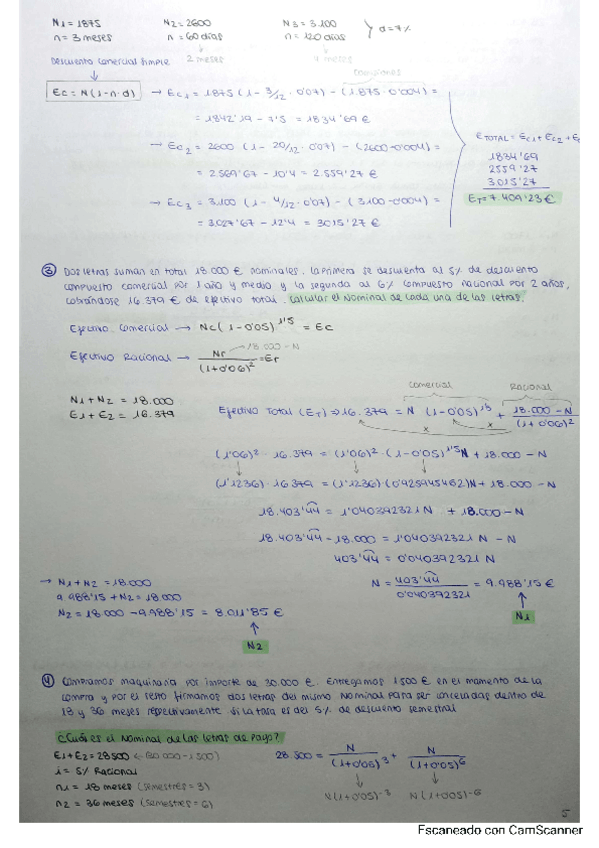 N1 = 1875 N2 = 2600 N3 = 3.100 d = 7%
n = 3 meses n = 60 días n = 120 días
2 meses 4 meses
Descuento comercial simple
comisiones
Ec = N(1-n·d) → Ec1 = 1875 (1 - 3/12 · 0'07) - (1.875 · 0'004) =
= 1842'19 - 7'5 = 1834'69 €
ETOTAL = Ec1 + Ec2 + Ec
→ Ec2 = 2600 (1 - 20/12 · 0'07) - (2600 - 0'004) =
1834'69
2559'27
= 2.569'67 - 10'4 = 2.559'27 €
3.015'27
→ Ec3 = 3.100 (1 - 4/12 · 0'07) - (3.100 - 0'004) =
ET = 7.409'23 €
= 3.027'67 - 12'4 = 3015'27 €
③ Dos letras suman en total 18.000 € nominales. La primera se descuenta al 5% de descuento
compuesto comercial por 1 año y medio y la segunda al 6% compuesto racional por 2 años,
cobrándose 16.379 € de efectivo total. Calcular el Nominal de cada una de las letras.
Efectivo Comercial → Nc (1 - 0'05)^1'5 = Ec
18.000 - N
Efectivo Racional → Nr / (1 + 0'06)^2 = Er
comercial Racional
N1 + N2 = 18.000
E1 + E2 = 16.379
Efectivo Total (ET) ⇒ 16.379 = N (1 - 0'05)^1'5 + 18.000 - N / (1 + 0'06)^2
x x
(1'06)^2 · 16.379 = (1'06)^2 · (1 - 0'05)^1'5 N + 18.000 - N
(1'1236) · 16379 = (1'1236) · (0'925945462) N + 18.000 - N
18.403'44 = 1'040392321 N + 18.000 - N
18.403'44 - 18.000 = 1'040392321 N - N
403'44 = 0'040392321 N
→ N1 + N2 = 18.000
9.988'15 + N2 = 18.000
N = 403'44 / 0'040392321 = 9.988'15 €
N2 = 18.000 - 9.988'15 = 8.011'85 €
N1
N2
④ Compramos maquinaria por importe de 30.000 €. Entregamos 1500 € en el momento de la
compra y por el resto firmamos dos letras del mismo Nominal para ser canceladas dentro de
18 y 36 meses respectivamente si la tasa es del 5% de descuento semestral
¿Cuál es el Nominal de las letras de pago?
E1 + E2 = 28500 (30.000 - 1.500)
28.500 = N / (1 + 0'05)^3 + N / (1 + 0'05)^6
i = 5% Racional
n1 = 18 meses (semestres = 3)
N(1 + 0'05)^-3 N(1 + 0'05)^-6
n2 = 36 meses (semestres = 6)
5
Escaneado con CamScanner